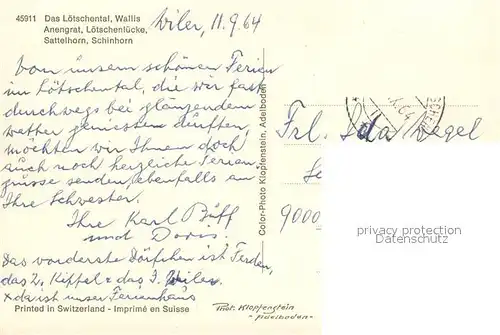 45911 Das Lötschental, Wallis
Anengrat, Lötschenlücke,
Sattelhorn, Schinhorn
Wiler, 11.9.64
Von unserm schönen Ferien
im Lötschental, die wir fast
durchwegs bei glänzendem
Wetter geniessen durften,
möchten wir Ihnen doch
auch noch herzliche Ferien-
grüsse senden, ebenfalls an
Ihre Schwester.
Ihre Karl
und Doris.
Das vorderste Dörfchen ist Ferden,
das 2. Kippel & das 3. Wiler.
x da ist unser Ferienhaus
Printed in Switzerland - Imprimé en Suisse
Color-Photo Klopfenstein, Adelboden
Phot. Klopfenstein
- Adelboden -
Frl. Ida
9000
privacy protection
Datenschutz